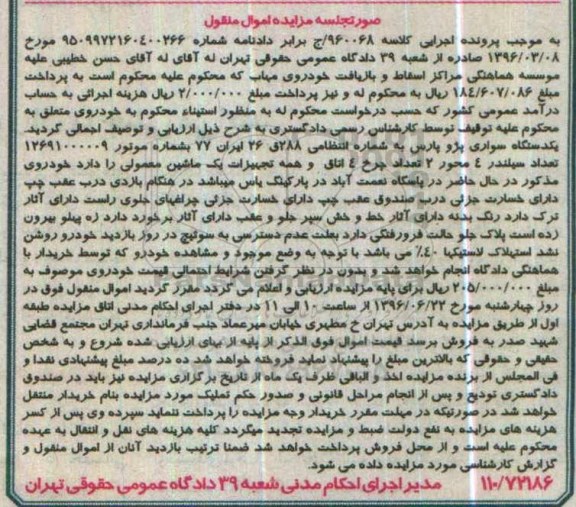 صورتجلسه مزایده اموال منقول
به موجب پرونده اجرایی کلاسه ۹۶۰۰۶۸/ج برابر دادنامه شماره ۹۵۰۹۹۷۲۱۶۰۴۰۰۲۶۶ مورخ
۱۳۹۶/۰۳/۰۸ صادره از شعبه ۳۹ دادگاه عمومی حقوقی تهران له آقای له آقای حسن خطیبی علیه
موسسه هماهنگی مراکز اسقاط و بازیافت خودروی مهاب که محکوم علیه محکوم است به پرداخت
مبلغ ۱۸۴/۶۰۷/۰۸۶ ریال به محکوم له و نیز پرداخت مبلغ ۲/۰۰۰/۰۰۰ ریال هزینه اجرائی به حساب
درآمد عمومی کشور که حسب درخواست محکوم له به منظور استیفاء محکوم به خودروی متعلق به
محکوم علیه توقیف توسط کارشناس رسمی دادگستری به شرح ذیل ارزیابی و توصیف اجمالی گردید.
یکدستگاه سواری پژو پارس به شماره انتظامی ۲۸۸ق ۲۶ ایران ۷۷ بشماره موتور ۱۲۴۶۹۱۰۰۰۰۹
تعداد سیلندر ۴ محور ۲ تعداد چرخ ۴ اتاق و همه تجهیزات یک ماشین معمولی را دارد خودروی
مذکور در حال حاضر در پاسگاه نعمت آباد در پارکینگ یاس میباشد در هنگام بازدی درب عقب چپ
دارای خسارت جزئی درب صندوق عقب چپ دارای خسارت جزئی چراغهای جلوی راست دارای آثار
ترک دارد رنگ بدنه دارای آثار خط و خش سپر جلو و عقب دارای آثار برخورد دارد زه پیلو بیرون
زده است پلاک جلو حالت فرورفتگی دارد بعلت عدم دسترسی به سوئیچ در روز بازدید خودرو روشن
نشد استهلاک لاستیکها ۴۰٪ می باشد با توجه به وضع موجود و مشاهده خودرو که توسط خریدار با
هماهنگی دادگاه انجام خواهد شد و بدون در نظر گرفتن شرایط احتمالی قیمت خودروی موصوف به
مبلغ ۲۰۵/۰۰۰/۰۰۰ ریال برای پایه مزایده ارزیابی و اعلام می گردد. مقرر گردید اموال منقول فوق در
روز چهارشنبه مورخ ۱۳۹۶/۰۶/۲۲ از ساعت ۱۰ الی ۱۱ در دفتر اجرای احکام مدنی اتاق مزایده طبقه
اول از طریق مزایده به آدرس تهران خ مطهری خیابان میرعماد جنب فرمانداری تهران مجتمع قضایی
شهید صدر به فروش برسد قیمت اموال فوق الذکر از پایه از بهای ارزیابی شده شروع و به شخص
حقیقی و حقوقی که بالاترین مبلغ را پیشنهاد نماید فروخته خواهد شد ده درصد مبلغ پیشنهادی نقدا و
فی المجلس از برنده مزایده اخذ و الباقی ظرف یک ماه از تاریخ برگزاری مزایده نیز باید در صندوق
دادگستری تودیع و پس از انجام مراحل قانونی و صدور حکم تملیک مورد مزایده بنام خریدار منتقل
خواهد شد در صورتیکه در مهلت مقرر خریدار وجه مزایده را پرداخت ننماید سپرده وی پس از کسر
هزینه های مزایده به نفع دولت ضبط و مزایده تجدید میگردد کلیه هزینه های نقل و انتقال به عهده
محکوم علیه است و از محل فروش پرداخت خواهد شد ضمنا ترتیب بازدید آنان از اموال منقول و
گزارش کارشناسی مورد مزایده داده می شود.
۱۱۰/۷۲۱۸۶ مدیر اجرای احکام مدنی شعبه ۳۹ دادگاه عمومی حقوقی تهران